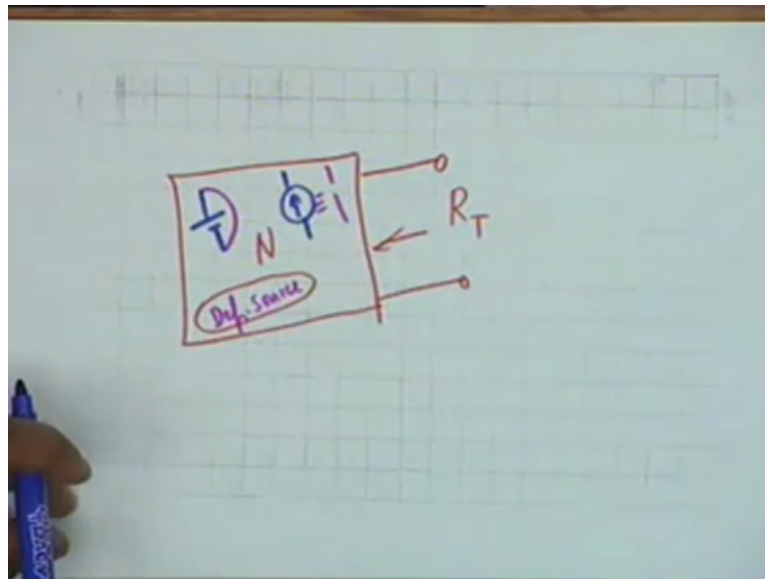 N
Dep. Source
R_T